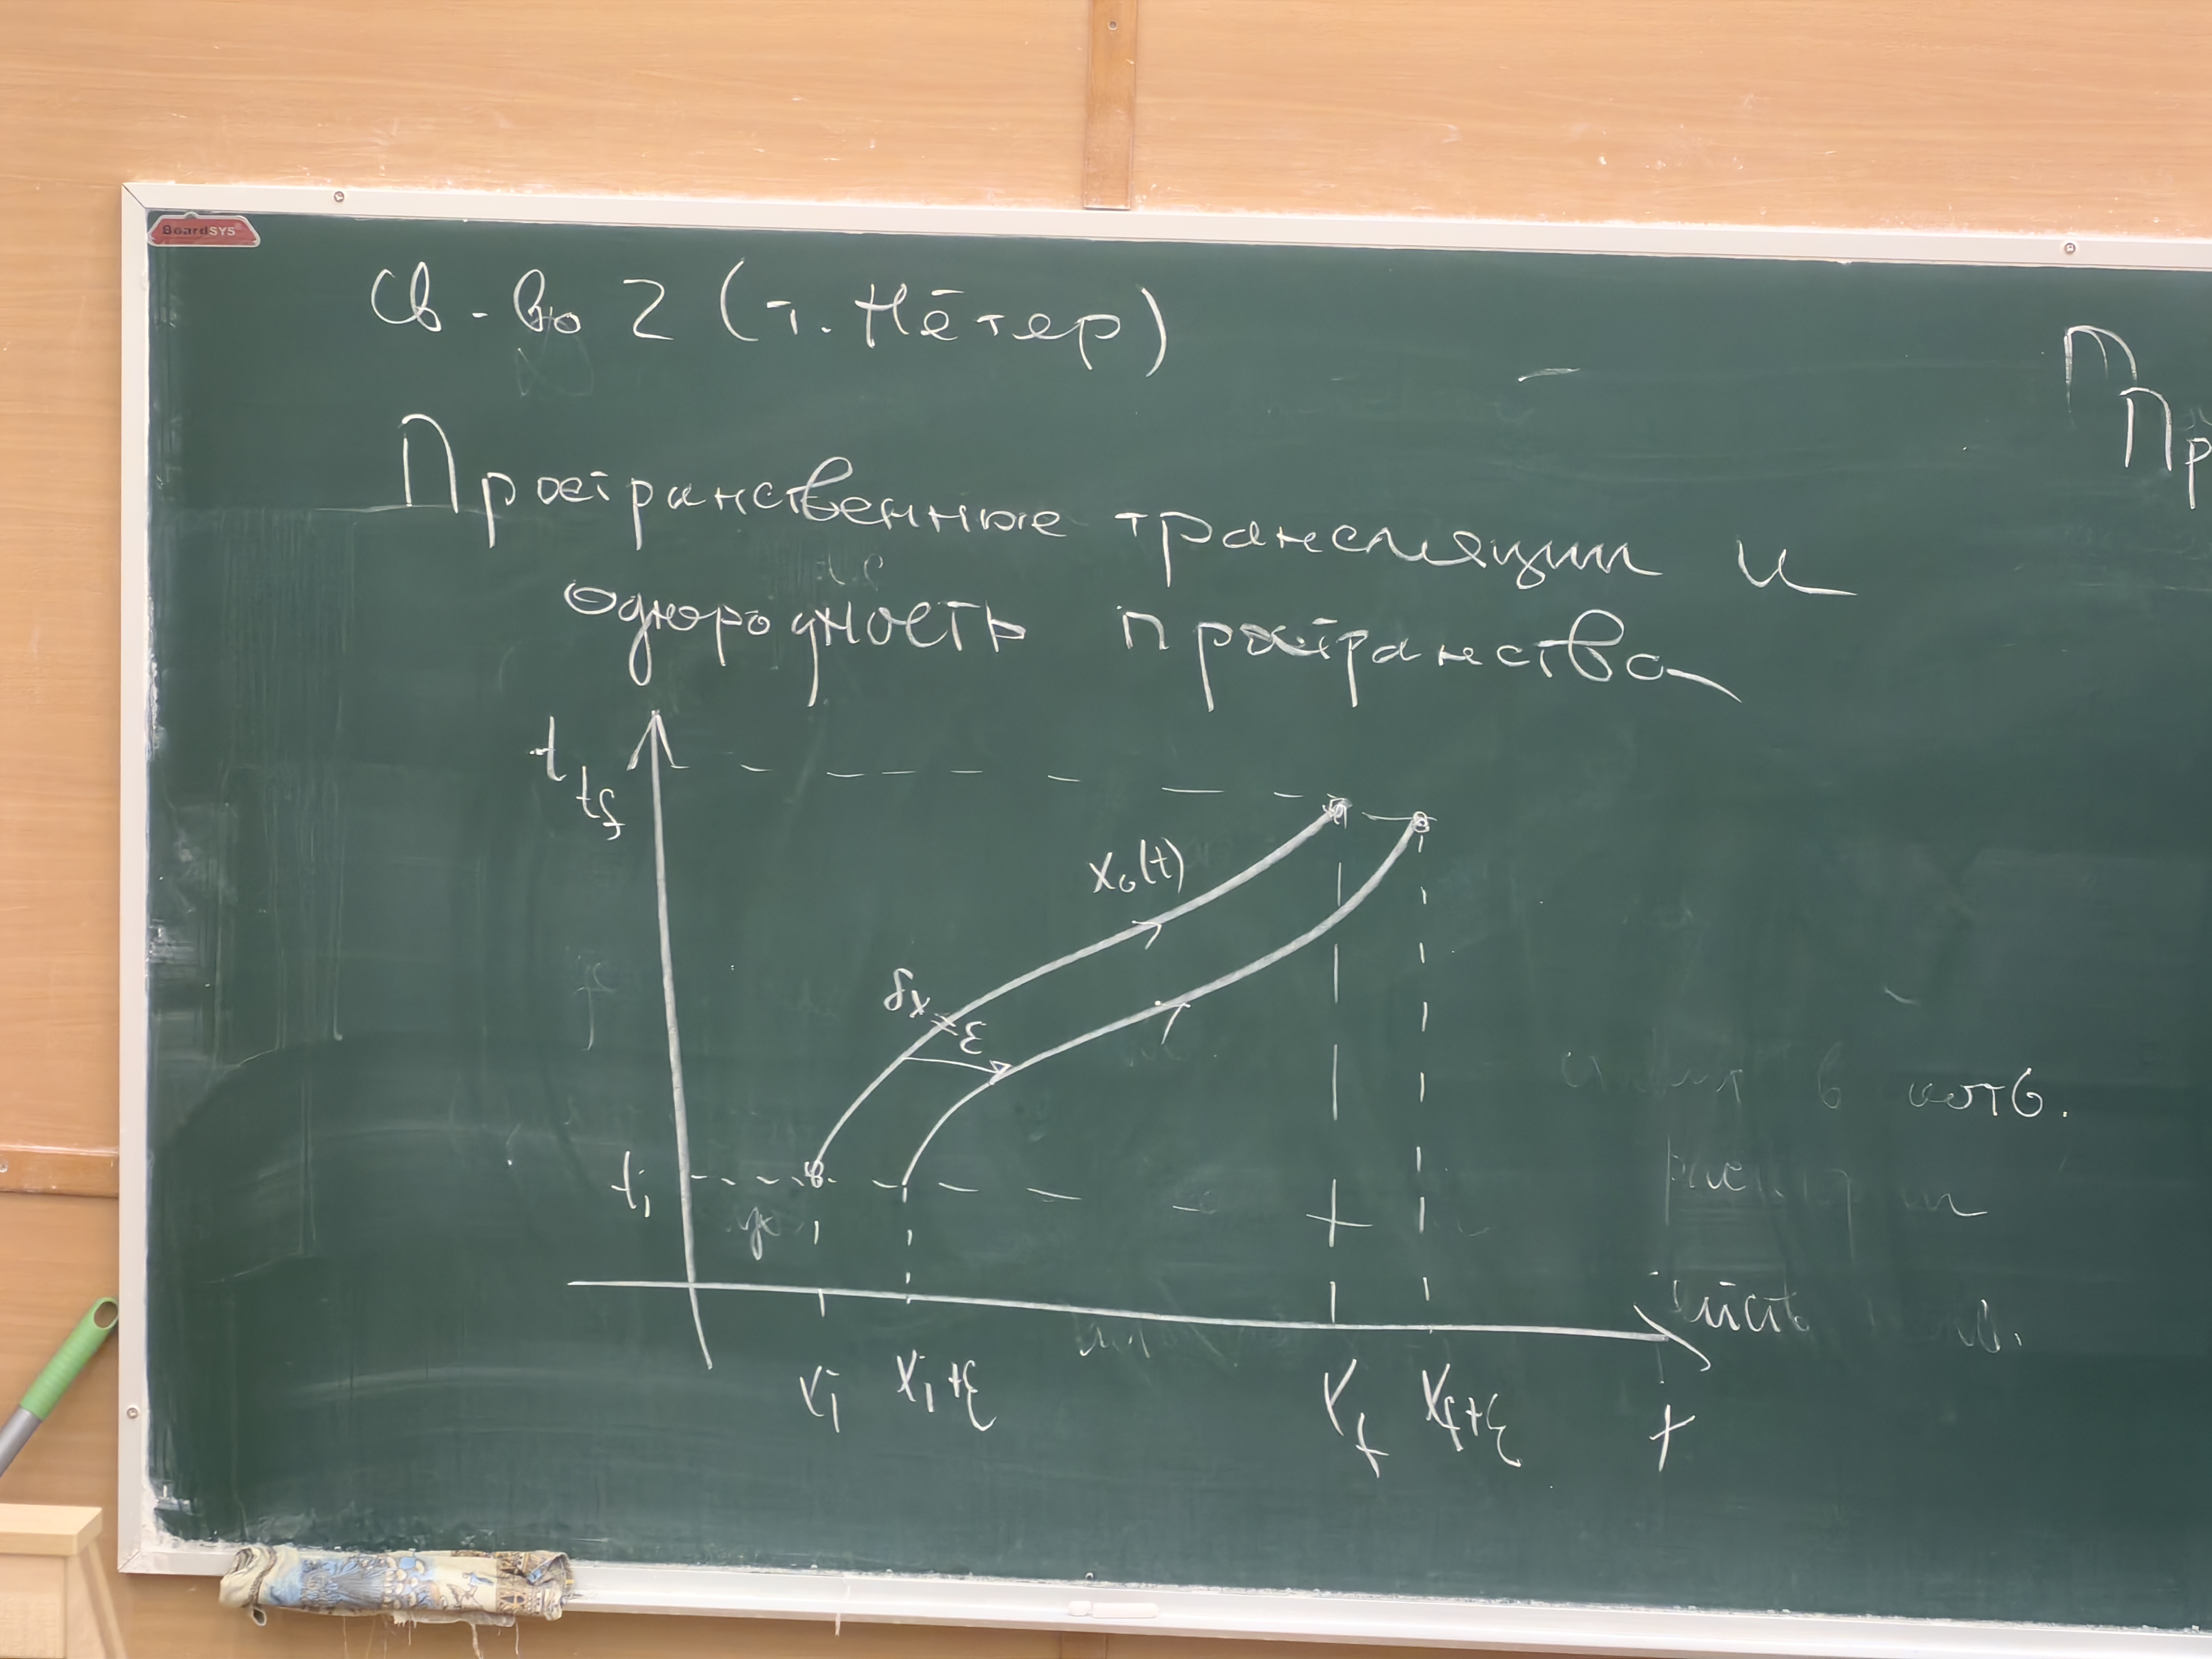 BoardSYS
Св-во 2 (т. Нётер)
Пространственные трансляции и
однородность пространства
t
t_f
x₀(t)
δx = ε
t_i
x_i x_i+ε x_f x_f+ε x
Пр